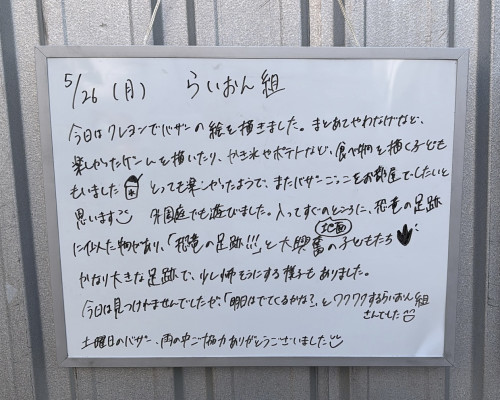 5/26 (月) らいおん組
今日はクレヨンでバザーの絵を描きました。まとあてやわなげなど、
楽しかったゲームを描いたり、かき氷やポテトなど、食べ物を描く子ども
もいました とっても楽しかったようで、またバザーごっこをお部屋でしたいと
思います 外園庭でも遊びました。入ってすぐのところに、恐竜の足跡
に似た物があり、「恐竜の足跡!!!」と大興奮の子どもたち
地面
かなり大きな足跡で、少し怖そうにする様子もありました。
今日は見つけれませんでしたが、「明日はでてくるかな?」とワクワクするらいおん組
さんでした
土曜日のバザー、雨の中ご協力ありがとうございました